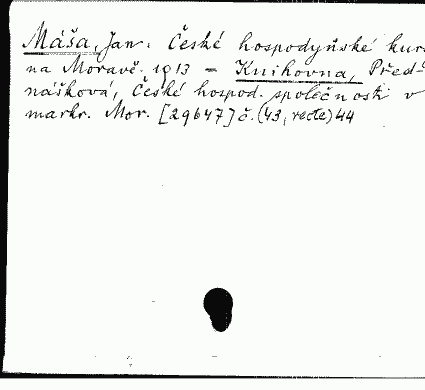 Máša, Jan: České hospodyňské kurs
na Moravě. 1913 = Knihovna, Před-
nášková, České hospod. společnosti v
markr. Mor. [29647] č. (43, recte) 44